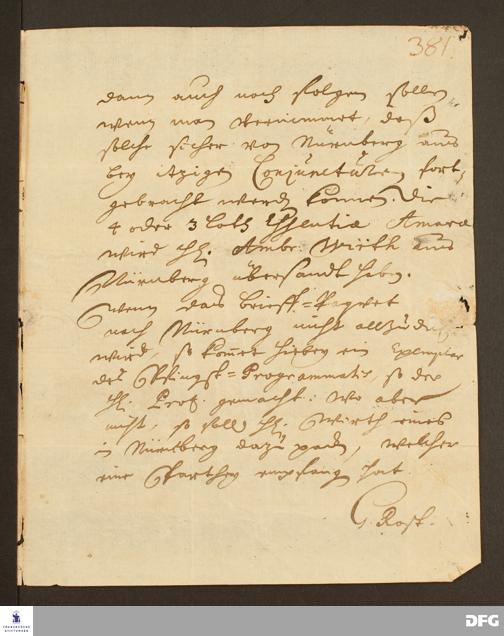 381
dann auch noch folgen sollen
wenn man vernimmet, daß
solche sicher von Nürnberg aus
bey itzigen Conjuncturen fort,
gebracht werden können. Die
4 oder 3 Loth Essentiæ Amaræ
wird H. Ambr: Wirth aus
Nürnberg übersandt haben.
Wenn das brieff=Paquet
nach Nürnberg nicht allzu dick
wird, so kommt hiebey ein Exemplar
des Pfingst=Programmatis, so der
H. Prof. gemacht: Wo aber
nicht, so soll H. Wirth eines
in Nürnberg dazu packen, welcher
eine Parthey empfangen hat.
G. Rost.
FRANCKESCHE
STIFTUNGEN
DFG